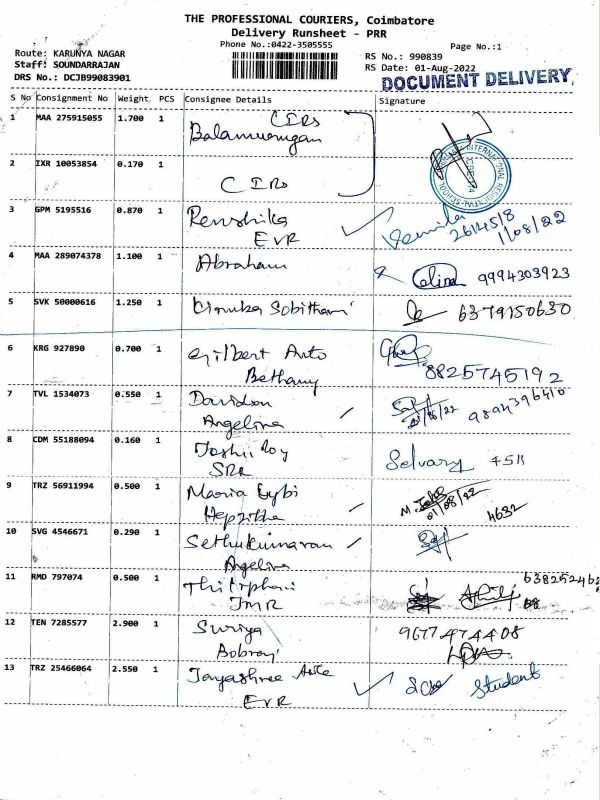 THE PROFESSIONAL COURIERS, Coimbatore
Delivery Runsheet - PRR
Phone No.:0422-3505555
Page No.:1
Route: KARUNYA NAGAR
Staff: SOUNDARRAJAN
DRS No.: DCJB99083901
RS No.: 990839
RS Date: 01-Aug-2022
DOCUMENT DELIVERY
S No Consignment No Weight PCS Consignee Details Signature
1 MAA 275915055 1.700 1 CIRs
Balamurugan
2 IXR 10053854 0.170 1
CIRs
3 GPM 5195516 0.870 1 Renshika
EVR
1/08/22
4 MAA 289074378 1.100 1 Abraham 9994303923
5 SVK 50000616 1.250 1 6379150630
6 KRG 927890 0.700 1 Gilbert Anto
Bethany 8825745192
7 TVL 1534073 0.550 1 Davidson
Angelina
8 CDM 55188094 0.160 1 Selvary
SRR
9 TRZ 56911994 0.500 1 Maria
Hepziba 01/08/22 4632
10 SVG 4546671 0.290 1 Sethukumaran
Angelina
11 RMD 797074 0.500 1
JMR
12 TEN 7285577 2.900 1 Suriya 9677474408
Bobray
13 TRZ 25466064 2.550 1 Jayashree Student
EVR